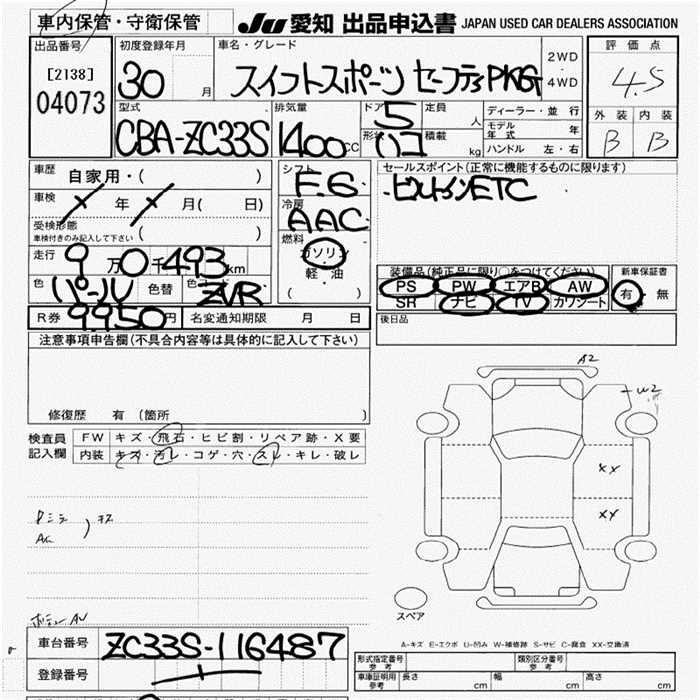 車内保管・守衛保管
Ju 愛知 出品申込書 JAPAN USED CAR DEALERS ASSOCIATION
出品番号
[2138]
04073
初度登録年月
30 月
車名・グレード
スイフトスポーツ セーフティPKG
2WD
・
4WD
評価点
4.5
外装 内装
B B
型式
CBA-ZC33S
排気量
1400 CC
ドア 5
形状 ハコ
定員 人
積載 kg
ディーラー・並行
モデル年式 年
ハンドル 左・右
車歴 自家用・( )
車検 年 月( 日)
受検形態
車検付きのみ記入して下さい ( )
走行 9万0千493km
色 パール 色替 ZVR
R券 9950円 名変通知期限 月 日
シフト F.6
冷房 AAC
燃料
ガソリン
軽・油
( )
セールスポイント(正常に機能するものに限ります)
・ビルトインETC
装備品(純正品に限り○をつけてください)
PS PW エアB AW
SR ナビ TV カワシート
新車保証書
有・無
後日品
注意事項申告欄(不具合内容等は具体的に記入して下さい)
修復歴 有 (箇所 )
検査員
記入欄
FW キズ・飛石・ヒビ割・リペア跡・X要
内装 キズ・汚レ・コゲ・穴・スレ・キレ・破レ
A2
W2
XX
XX
スペア
A-キズ E-エクボ U-凹み W-補修跡 S-サビ C-腐食 XX-交換済
車台番号 ZC33S-116487
登録番号
形式指定番号
参考
類別区分番号
参考
車庫証明用
参考
長さ cm 幅 cm 高さ cm